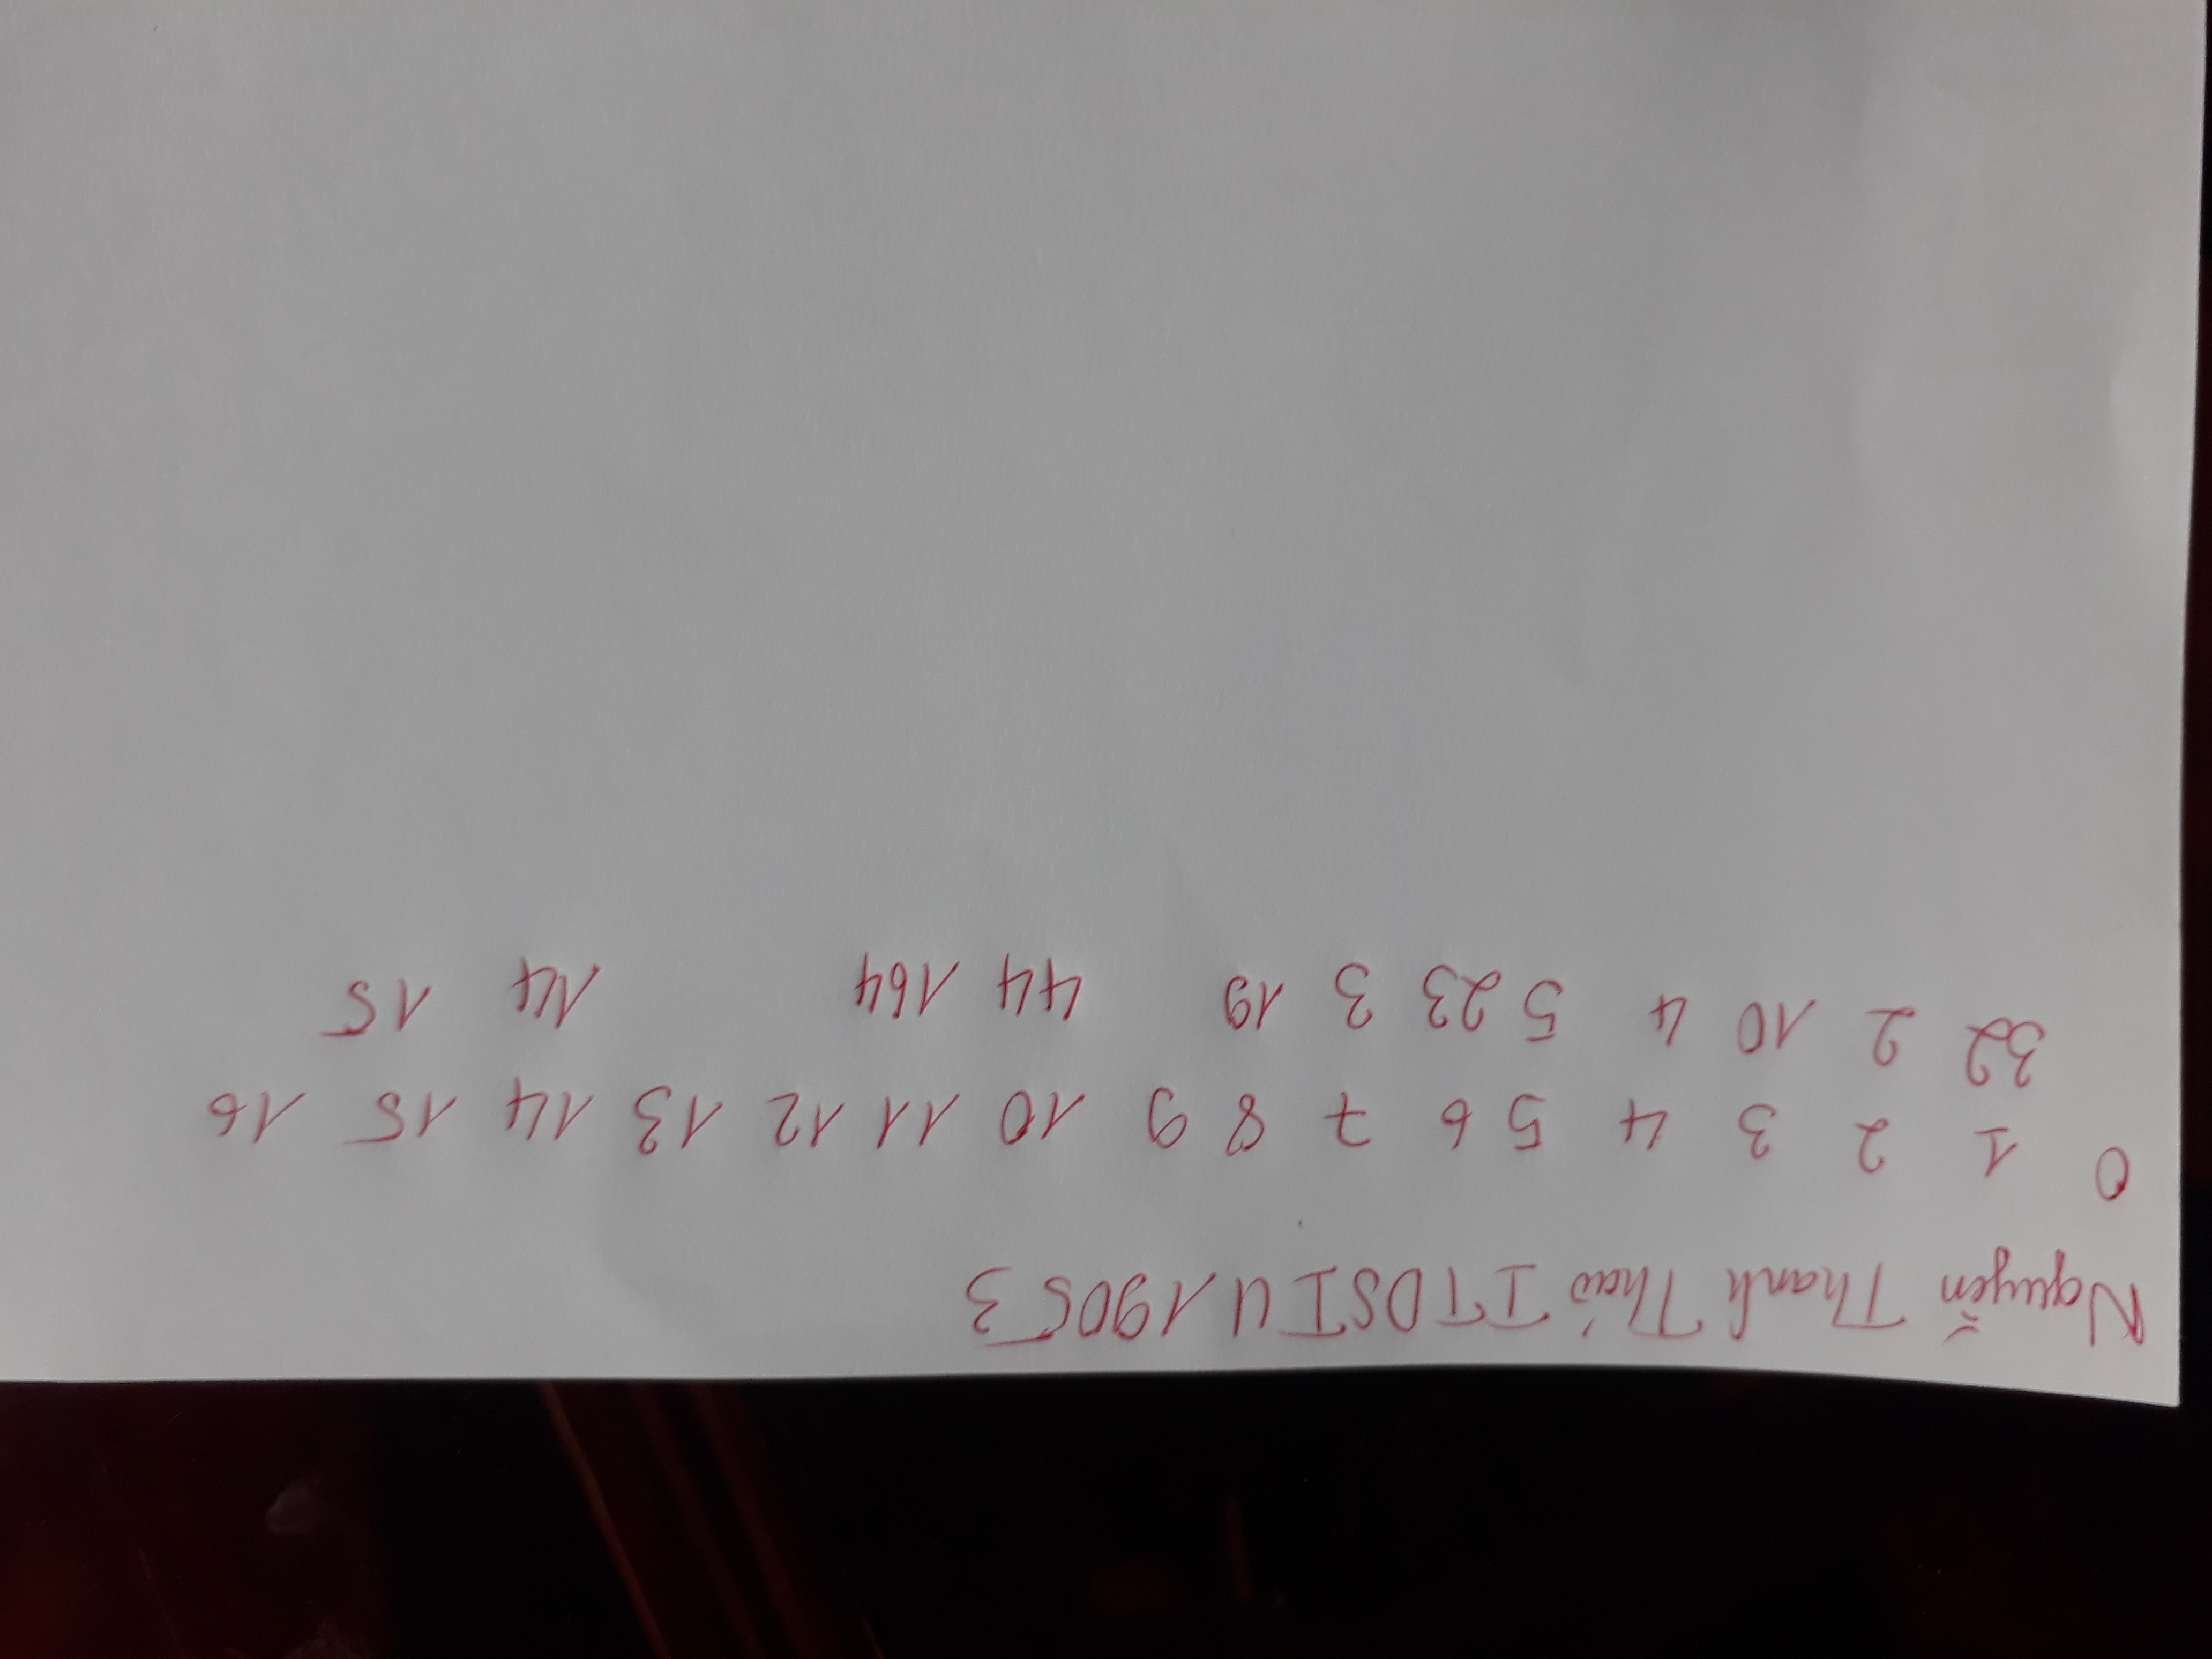 Nguyễn Thanh Thảo ITDSIU19053
0 1 2 3 4 5 6 7 8 9 10 11 12 13 14 15 16
32 2 10 4 5 23 3 19 44 164 14 15